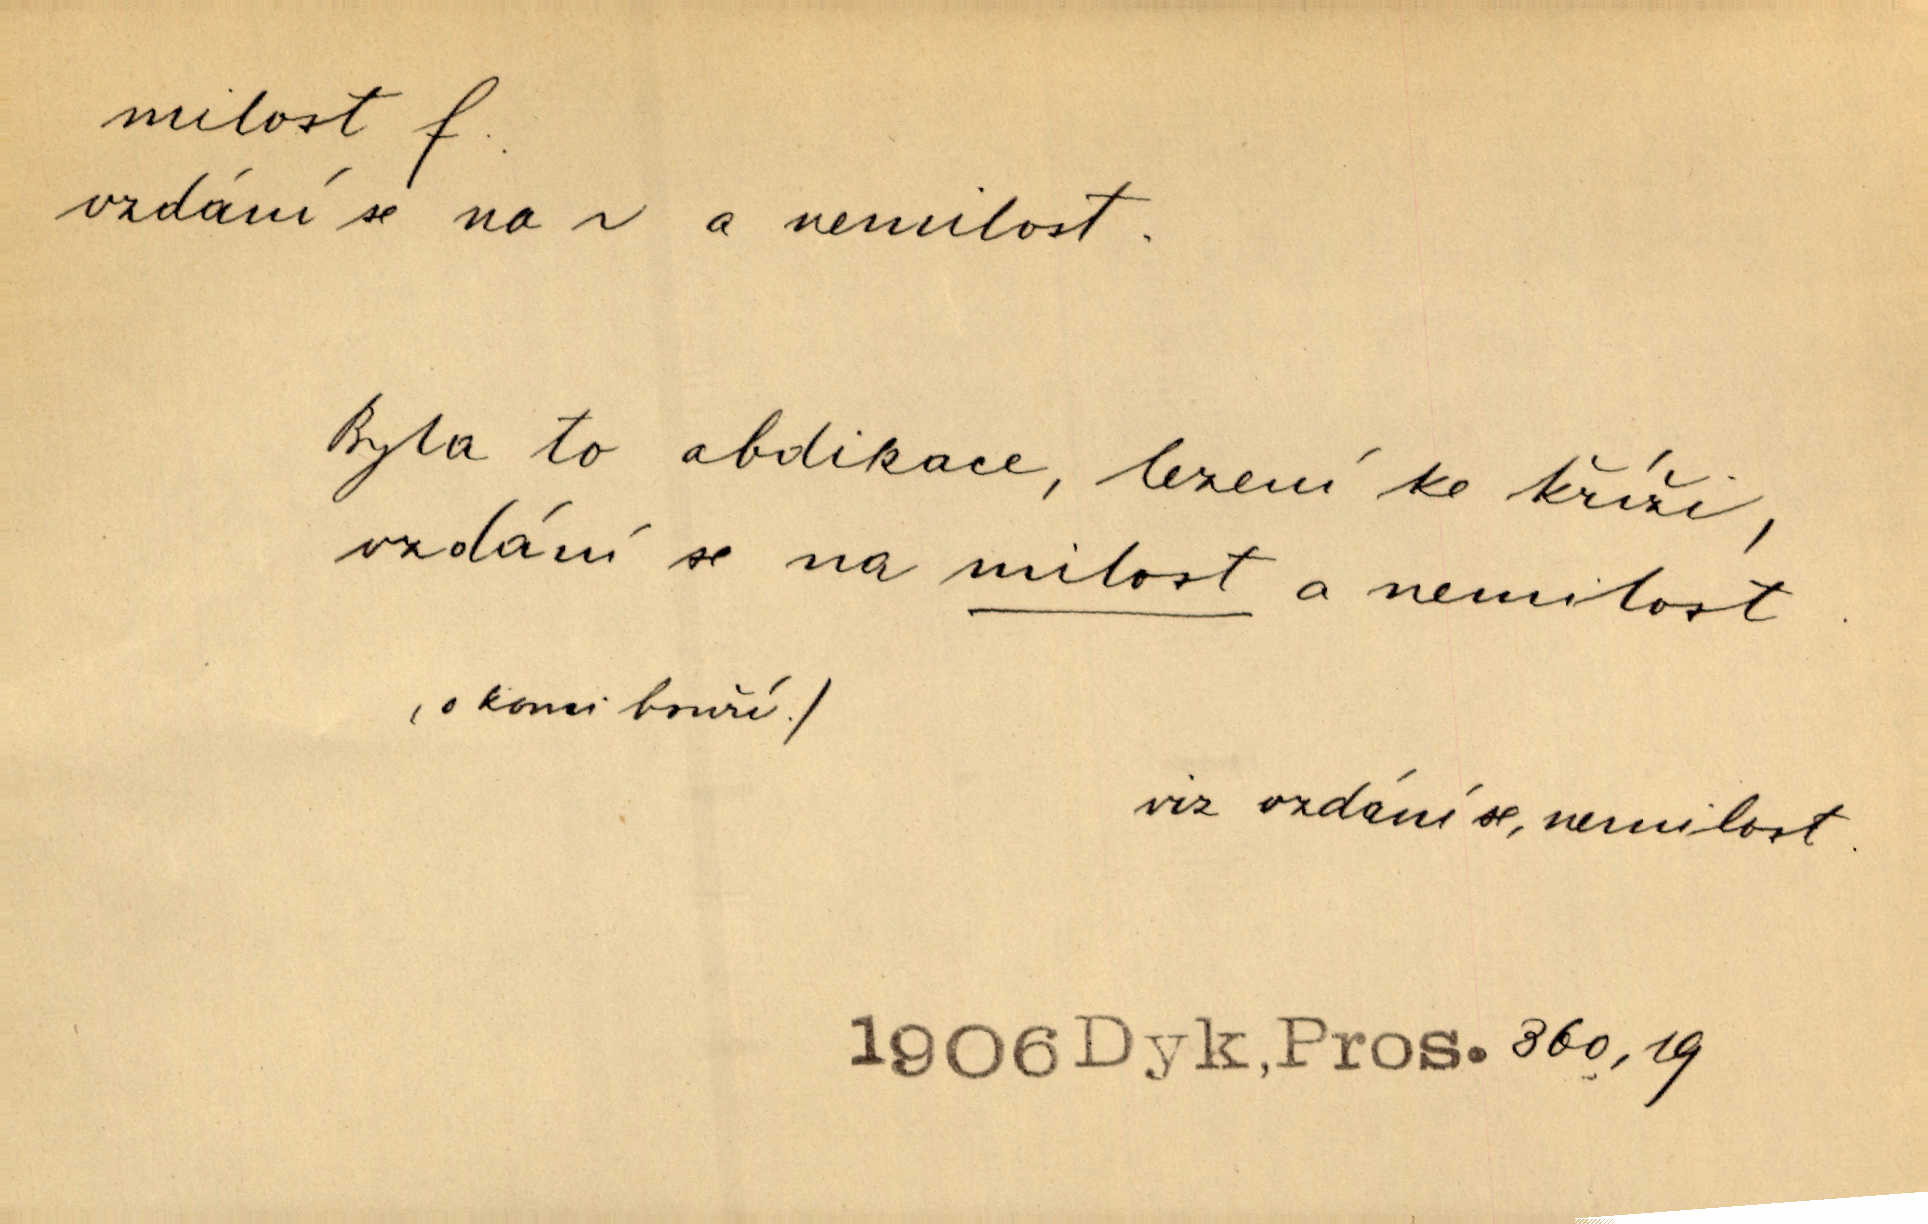 milost f.
vzdání se na ~ a nemilost.
Byla to abdikace, lezení ke kříži,
vzdání se na milost a nemilost.
(o konci bouří.)
viz vzdání se, nemilost.
1906 Dyk, Pros. 360, 19